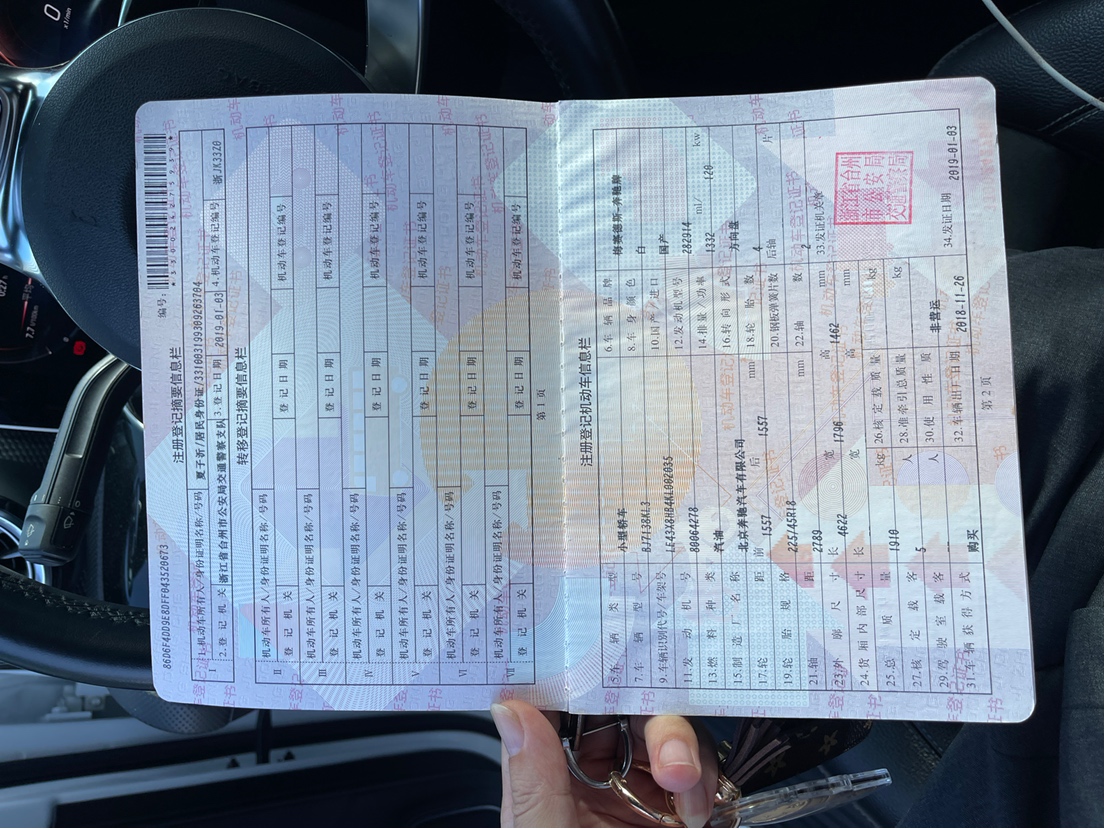 86D6F4DD9E8DFF043520673
编号:
注册登记摘要信息栏
I
1.机动车所有人/身份证明名称/号码 夏子沂/居民身份证/331003199309263704
2.登记机关 浙江省台州市公安局交通警察支队 3.登记日期 2019-01-03 4.机动车登记编号 浙JK33Z0
转移登记摘要信息栏
II
机动车所有人/身份证明名称/号码
登记机关 登记日期 机动车登记编号
III
机动车所有人/身份证明名称/号码
登记机关 登记日期 机动车登记编号
IV
机动车所有人/身份证明名称/号码
登记机关 登记日期 机动车登记编号
V
机动车所有人/身份证明名称/号码
登记机关 登记日期 机动车登记编号
VI
机动车所有人/身份证明名称/号码
登记机关 登记日期 机动车登记编号
VII
机动车所有人/身份证明名称/号码
登记机关 登记日期 机动车登记编号
第1页
注册登记机动车信息栏
5.车辆类型 小型轿车 6.车辆品牌 梅赛德斯-奔驰牌
7.车辆型号 BJ7138KL3 8.车身颜色 白
9.车辆识别代号/车架号 LE43X8HB4KL002035 10.国产/进口 国产
11.发动机号 80064278 12.发动机型号 282914
13.燃料种类 汽油 14.排量/功率 1332 ml/ 120 kw
15.制造厂名称 北京奔驰汽车有限公司 16.转向形式 方向盘
17.轮距 前 1557 后 1557 mm 18.轮胎数 4
19.轮胎规格 225/45R18 20.钢板弹簧片数 后轴 片
21.轴距 2789 mm 22.轴数 2
23.外廓尺寸 长 4622 宽 1796 高 1462 mm 33.发证机关章
24.货厢内部尺寸 长 宽 高 mm
25.总质量 1910 kg 26.核定载质量 kg
27.核定载客 5 人 28.准牵引总质量 kg
29.驾驶室载客 -- 人 30.使用性质 非营运
31.车辆获得方式 购买 32.车辆出厂日期 2018-11-26 34.发证日期 2019-01-03
浙江省台州
市公安局
交通警察局
第2页